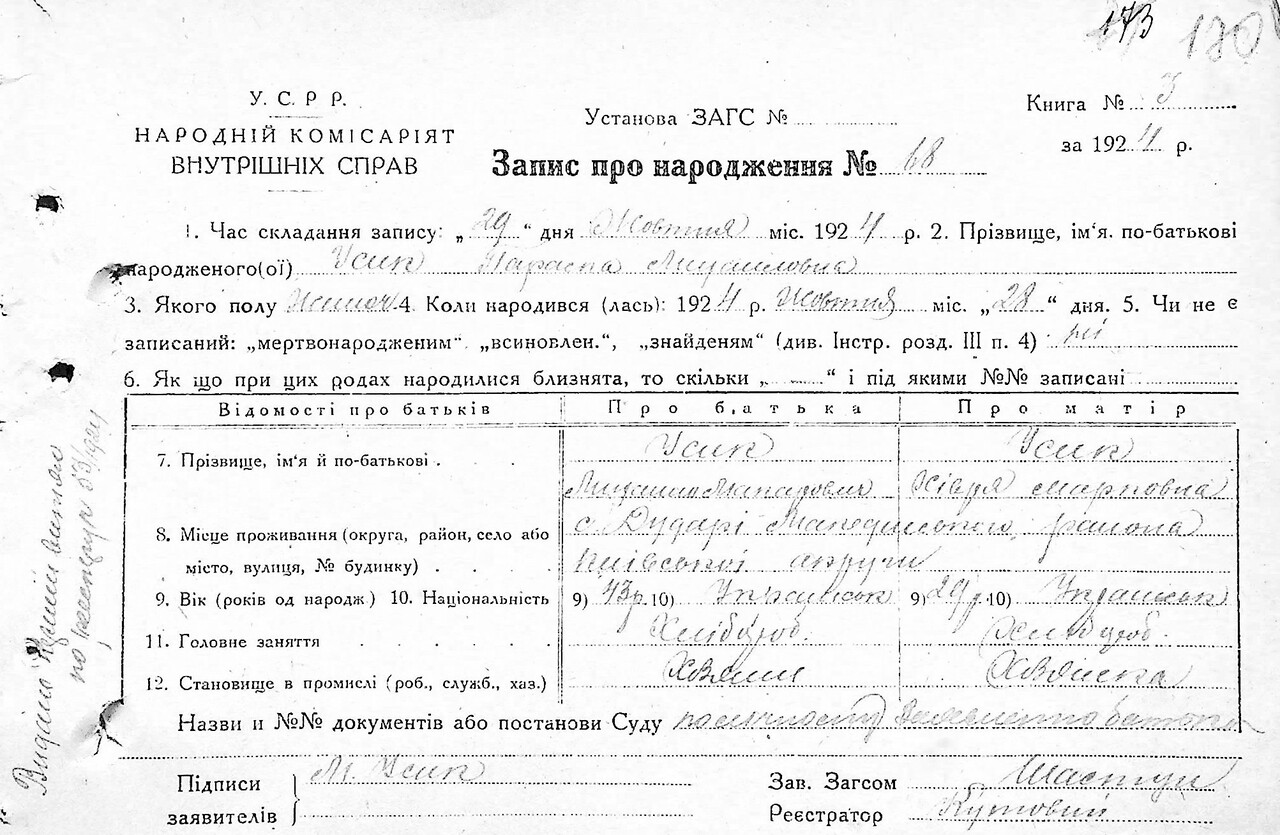 173 170
У. С. Р Р.
НАРОДНІЙ КОМІСАРІЯТ
ВНУТРІШНІХ СПРАВ
Установа ЗАГС №
Книга № 3
за 1924 р.
Запис про народження № 68
1. Час складання запису: „ 29 “ дня Жовтня міс. 1924 р. 2. Прізвище, ім'я. по-батькові
народженого(ої) Усик Параска Михайловна
3. Якого полу Жіноч 4. Коли народився (лась): 1924 р. Жовтня міс. „ 28 “ дня. 5. Чи не є
записаний: „мертвонародженим“ „всиновлен.“, „знайденям“ (див. Інстр. розд. III п. 4) ні
6. Як що при цих родах народилися близнята, то скільки „ “ і під якими №№ записані
Відомості про батьків Про батька Про матір
7. Прізвище, ім'я й по-батькові . Усик Усик
Михайло Макарович Хівря Марковна
8. Місце проживання (округа, район, село або с. Дударі Македонського района
місто, вулиця, № будинку) . Київської округи
9. Вік (років од народж) 10. Національність 9) 43р. 10) Українськ 9) 29 р. 10) Українськ
11. Головне заняття Хлібороб. Хлібороб.
12. Становище в промислі (роб., служб., хаз.) Хазяин Хазяйка
Назви и №№ документів або постанови Суду батька
Підписи
заявителів
М Усик
Зав. Загсом Шастун
Реєстратор Кутовий
Видано витяг
по